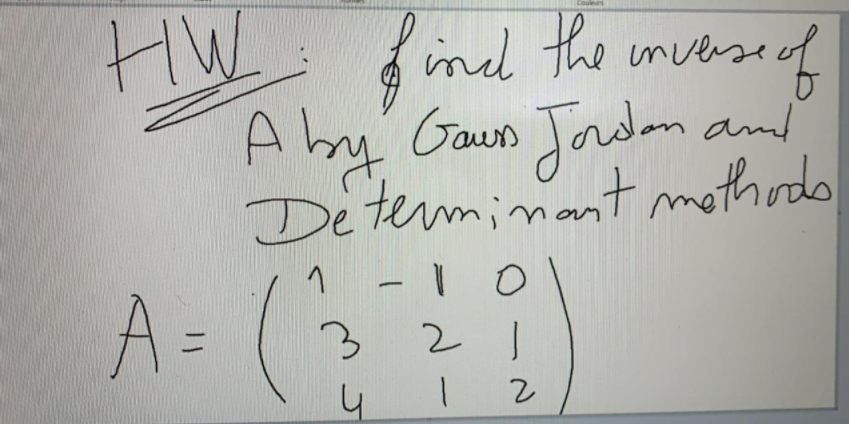 HW : find the inverse of
A by Gauss Jordan and
Determinant methods
A = ( 1 -1 0
3 2 1
4 1 2 )